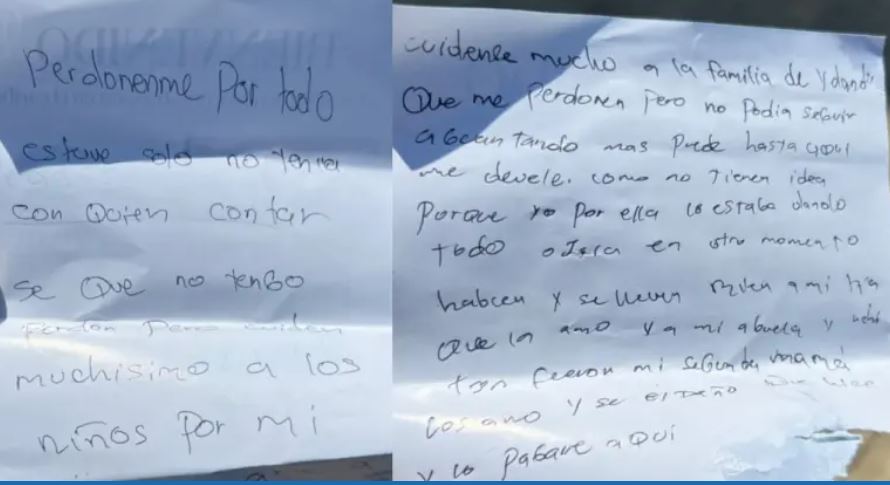 Perdonenme Por todo
estuve solo no tenia
con Quien contar
se Que no tenGo
Perdon Pero cuiden
muchisimo a los
niños Por mi
cuidense mucho a la familia de
Que me Perdonen Pero no Podia seGuir
aGuantando mas Pude hasta aqui
me devele. como no Tienen idea
Porque yo Por ella lo estaba dando
todo en otro momento
hablen y se lleven a mi
Que la amo y a mi abuela y
fueron mi segunda mamá
los amo y se el daño
y lo PaGare aQui